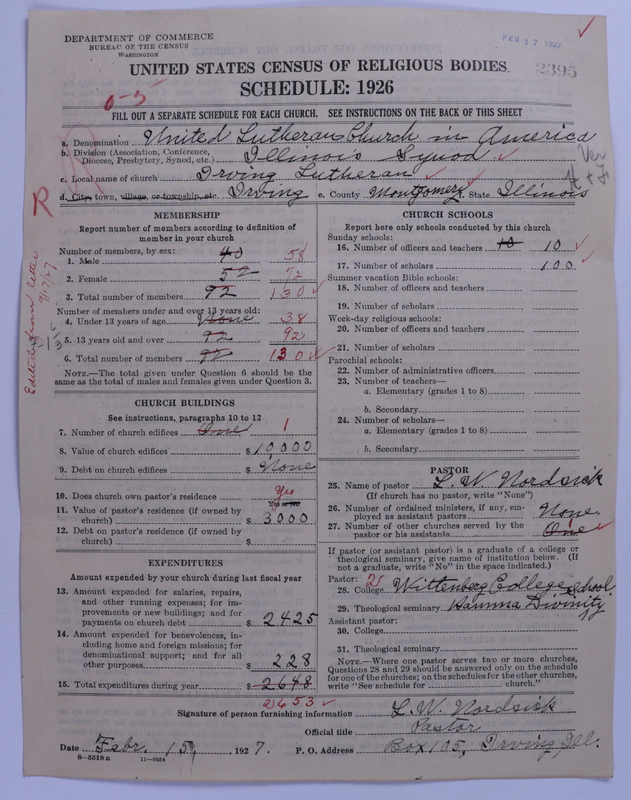 DEPARTMENT OF COMMERCE
BUREAU OF THE CENSUS
WASHINGTON
FEB 17 1927
2395
UNITED STATES CENSUS OF RELIGIOUS BODIES
SCHEDULE: 1926
0-5
FILL OUT A SEPARATE SCHEDULE FOR EACH CHURCH. SEE INSTRUCTIONS ON THE BACK OF THIS SHEET
a. Denomination United Lutheran Church in America
b. Division (Association, Conference, Diocese, Presbytery, Synod, etc.) Illinois Synod
c. Local name of church Irving Lutheran
d. City, town, village, or township, etc. Irving e. County Montgomery State Illinois
R
MEMBERSHIP
Report number of members according to definition of
member in your church
Number of members, by sex:
1. Male 40 58
2. Female 52 72
3. Total number of members 92 130
Number of members under and over 13 years old:
4. Under 13 years of age None 38
5. 13 years old and over 92 92
6. Total number of members 92 130
NOTE.—The total given under Question 6 should be
same as the total of males and females given under Question 3.
CHURCH BUILDINGS
See instructions, paragraphs 10 to 12
7. Number of church edifices One 1
8. Value of church edifices $10000
9. Debt on church edifices $None
10. Does church own pastor's residence Yes
Yes or No
11. Value of pastor's residence (if owned by
church) $3000
12. Debt on pastor's residence (if owned by
church) $
EXPENDITURES
Amount expended by your church during last fiscal year
13. Amount expended for salaries, repairs,
and other running expenses; for im-
provements or new buildings; and for
payments on church debt $2425
14. Amount expended for benevolences, in-
cluding home and foreign missions; for
denominational support; and for all
other purposes $228
15. Total expenditures during year $2648
2653
CHURCH SCHOOLS
Report here only schools conducted by this church
Sunday schools:
16. Number of officers and teachers 10 10
17. Number of scholars 100
Summer vacation Bible schools:
18. Number of officers and teachers
19. Number of scholars
Week-day religious schools:
20. Number of officers and teachers
21. Number of scholars
Parochial schools:
22. Number of administrative officers
23. Number of teachers—
a. Elementary (grades 1 to 8)
b. Secondary
24. Number of scholars—
a. Elementary (grades 1 to 8)
b. Secondary
PASTOR
25. Name of pastor L. W. Nordsick
(If church has no pastor, write "None")
26. Number of ordained ministers, if any, em-
ployed as assistant pastors None
27. Number of other churches served by the
pastor or his assistants One
If pastor (or assistant pastor) is a graduate of a college or
theological seminary, give name of institution below. (If
not a graduate, write "No" in the space indicated.)
Pastor: 2
28. College Wittenberg College
School
29. Theological seminary Hamma Divinity
Assistant pastor:
30. College
31. Theological seminary
NOTE.—Where one pastor serves two or more churches,
Questions 28 and 29 should be answered only on the schedule
for one of the churches; on the schedules for the other churches,
write "See schedule for church."
Signature of person furnishing information L. W. Nordsick
Official title Pastor
Date Febr. 15, 1927. P. O. Address Box 105, Irving Ill.
8-5518a 11-9054